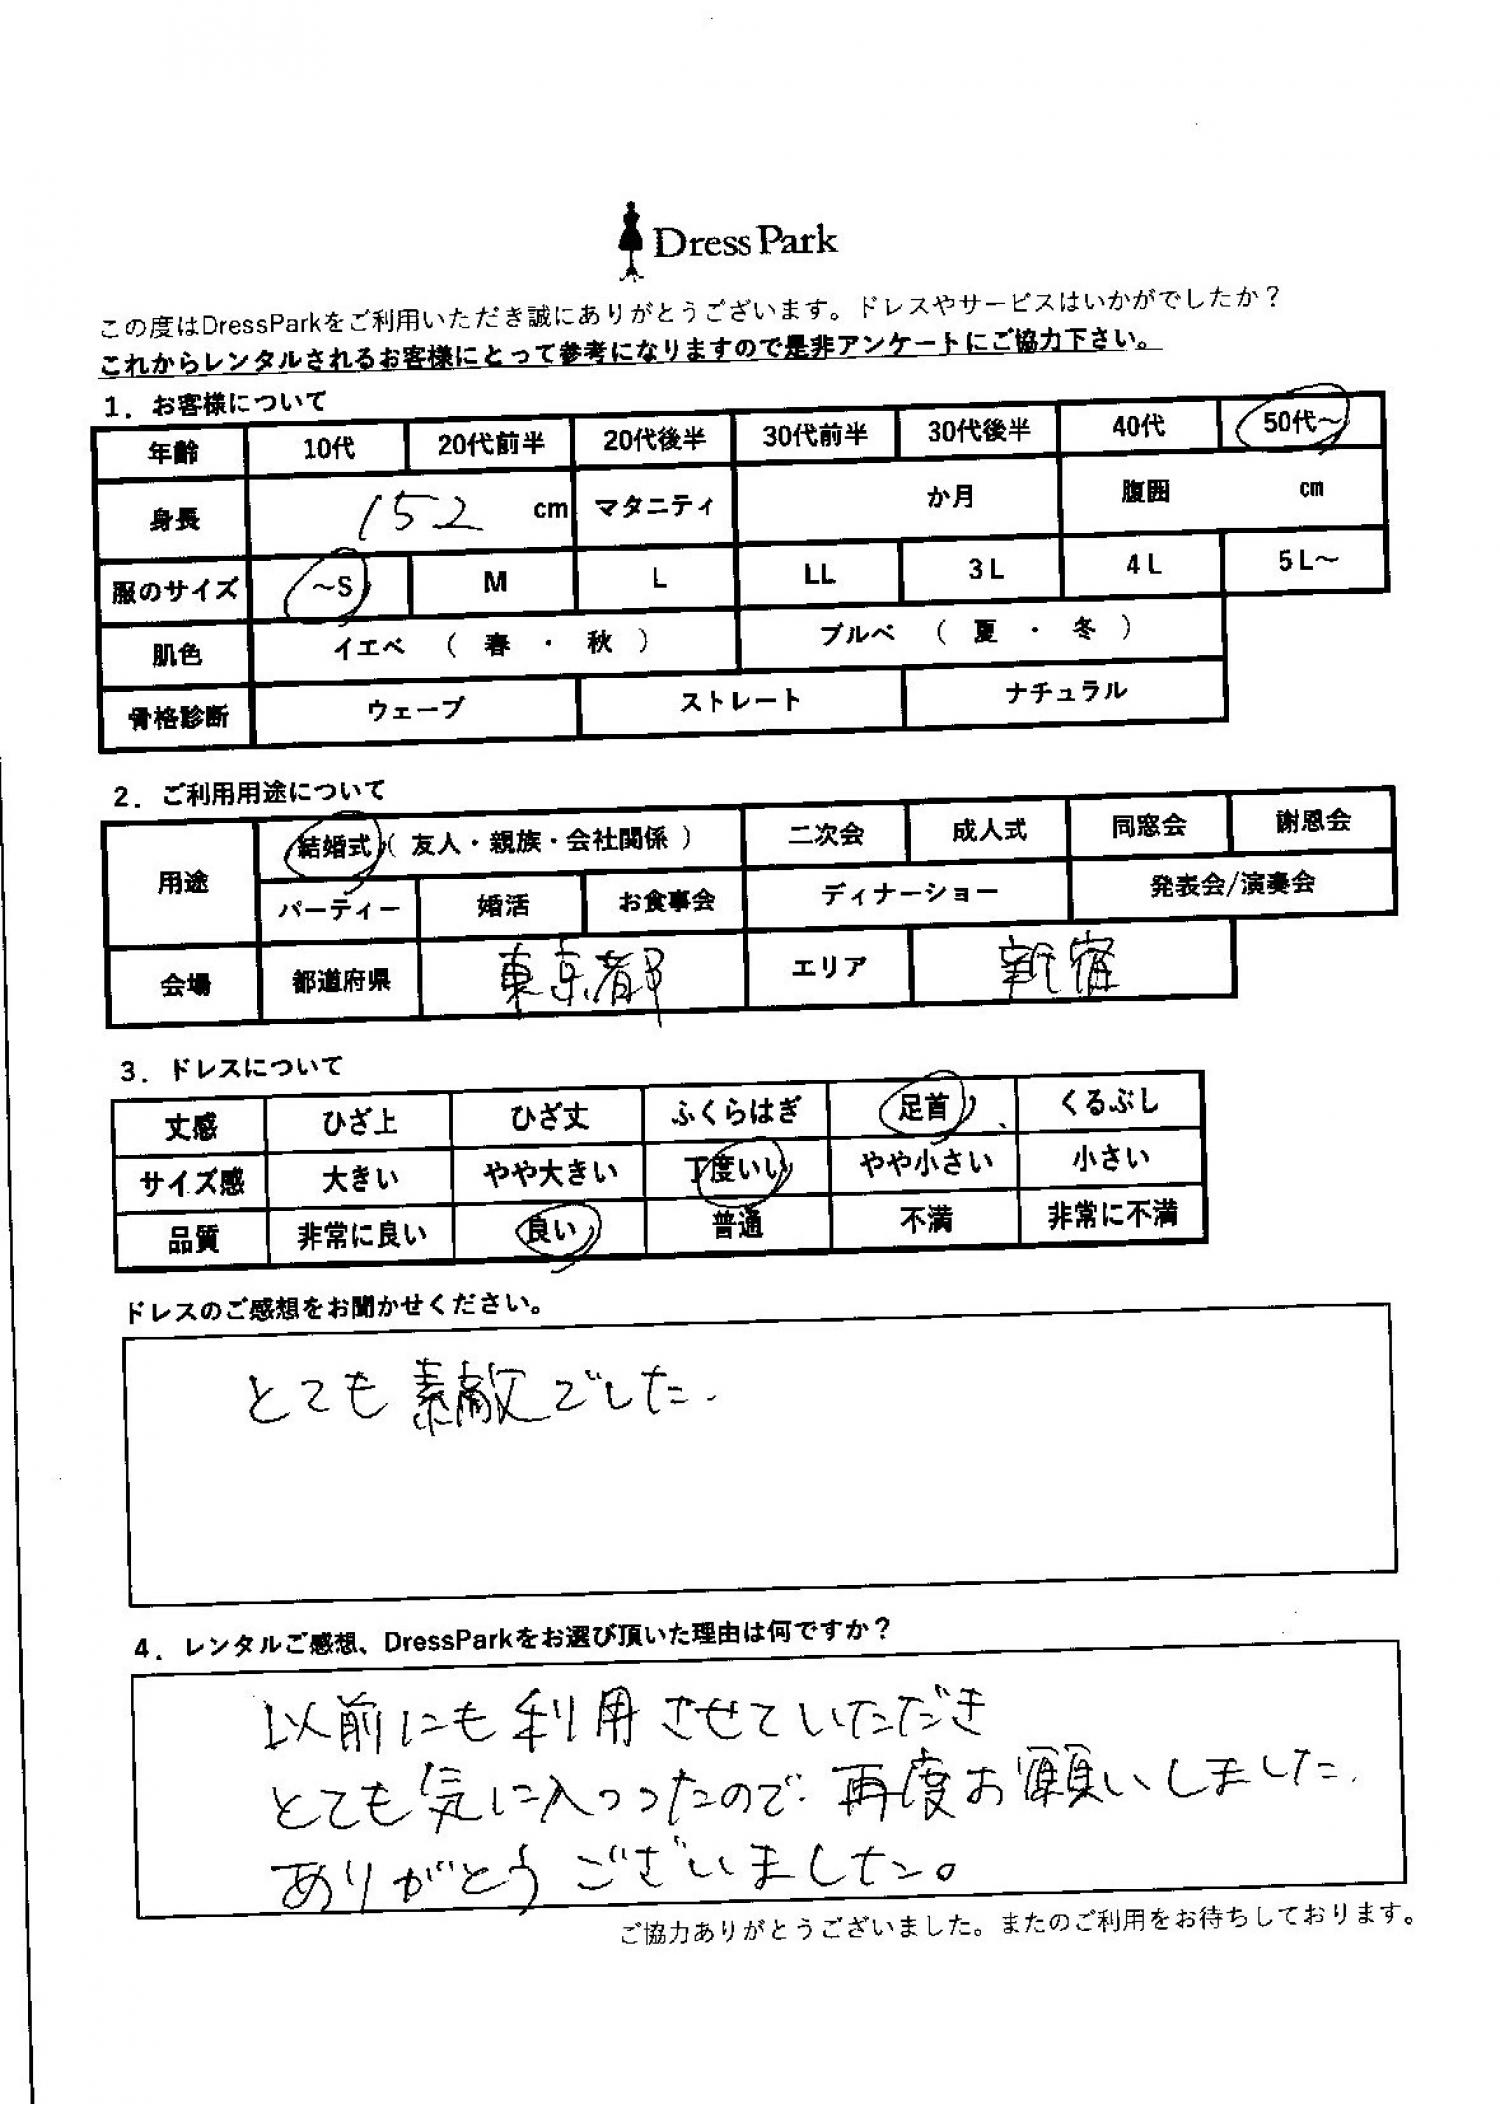 Dress Park
この度はDressParkをご利用いただき誠にありがとうございます。ドレスやサービスはいかがでしたか？
これからレンタルされるお客様にとって参考になりますので是非アンケートにご協力下さい。
1．お客様について
年齢 10代 20代前半 20代後半 30代前半 30代後半 40代 50代～
身長 152 cm マタニティ か月 腹囲 cm
服のサイズ ～S M L LL 3L 4L 5L～
肌色 イエベ （ 春 ・ 秋 ） ブルベ （ 夏 ・ 冬 ）
骨格診断 ウェーブ ストレート ナチュラル
2．ご利用用途について
用途 結婚式（ 友人・親族・会社関係 ） 二次会 成人式 同窓会 謝恩会
パーティー 婚活 お食事会 ディナーショー 発表会/演奏会
会場 都道府県 東京都 エリア 新宿
3．ドレスについて
丈感 ひざ上 ひざ丈 ふくらはぎ 足首 くるぶし
サイズ感 大きい やや大きい 丁度いい やや小さい 小さい
品質 非常に良い 良い 普通 不満 非常に不満
ドレスのご感想をお聞かせください。
とても素敵でした.
4．レンタルご感想、DressParkをお選び頂いた理由は何ですか？
以前にも利用させていただき
とても気に入ったので、再度お願いしました.
ありがとうございました。
ご協力ありがとうございました。またのご利用をお待ちしております。